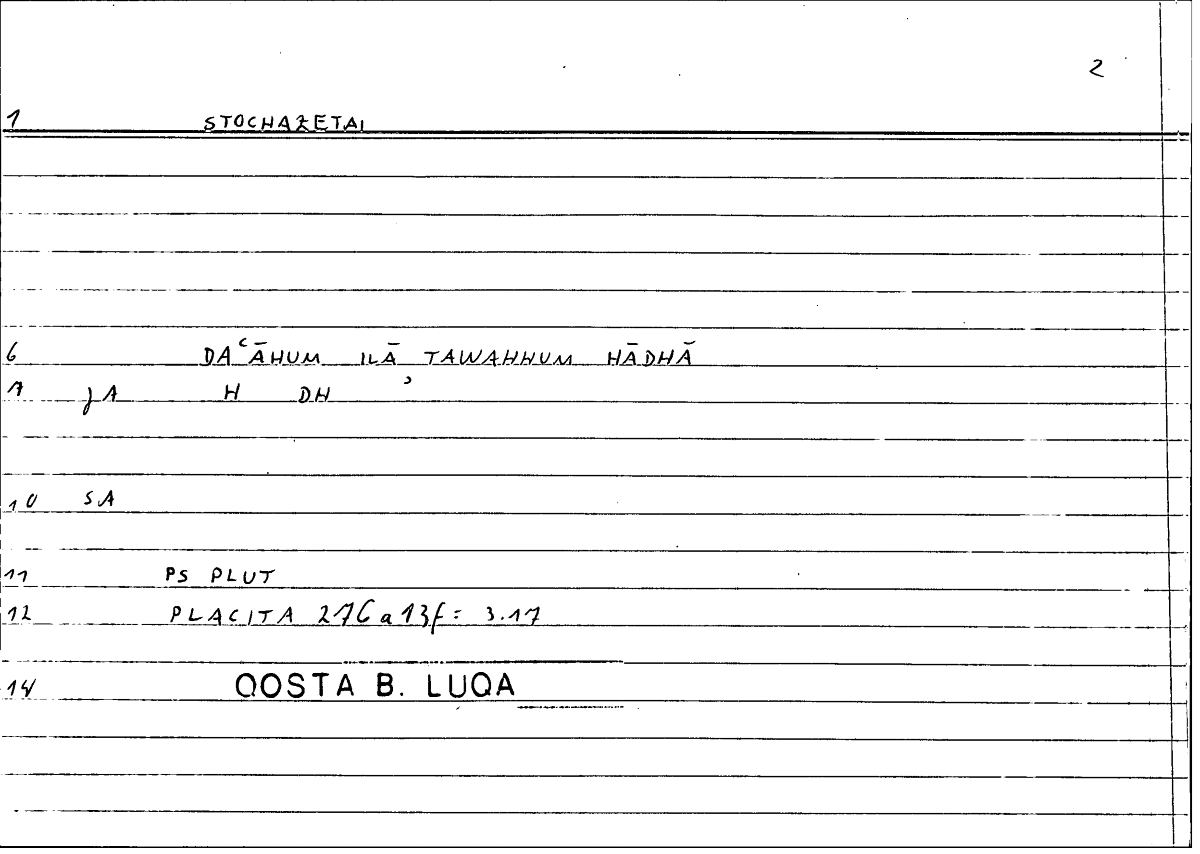 2
1 STOCHAZETAI
6 DAʿĀHUM ILĀ TAWAHHUM HĀDHĀ
7 JA H DH ʾ
10 SA
11 PS PLUT
12 PLACITA 276 a 13f = 3.17
14 QOSTA B. LUQA